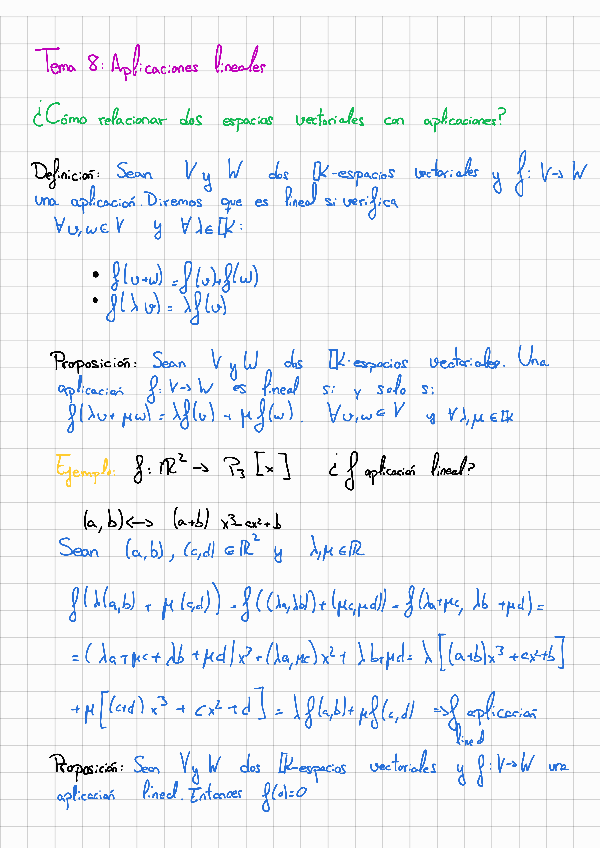 Tema 8: Aplicaciones lineales
¿Cómo relacionar dos espacios vectoriales con aplicaciones?
Definición: Sean V y W dos 𝕂-espacios vectoriales y f: V→W
una aplicación. Diremos que es lineal si verifica
∀υ,ω∈V y ∀λ∈𝕂:
• f(υ+ω) = f(υ)+f(ω)
• f(λυ) = λf(υ)
Proposición: Sean V y W dos 𝕂-espacios vectoriales. Una
aplicación f: V→W es lineal si y solo si:
f(λυ+μω) = λf(υ) + μf(ω) ∀υ,ω∈V y ∀λ,μ∈𝕂
Ejemplo: f: ℝ² → P₃[x] ¿f aplicación lineal?
(a,b) ↔ (a+b) x³-ax²+b
Sean (a,b), (c,d) ∈ℝ² y λ,μ∈ℝ
f(λ(a,b) + μ(c,d)) = f((λa,λb)+(μc,μd)) = f(λa+μc, λb+μd) =
= (λa+μc+λb+μd)x³+(λa,μc)x²+λb+μd = λ[(a+b)x³+ax²+b]
+μ[(c+d)x³+cx²+d] = λf(a,b)+μf(c,d) ⇒ f aplicación
lineal
Proposición: Sean V y W dos 𝕂-espacios vectoriales y f: V→W una
aplicación lineal. Entonces f(0)=0